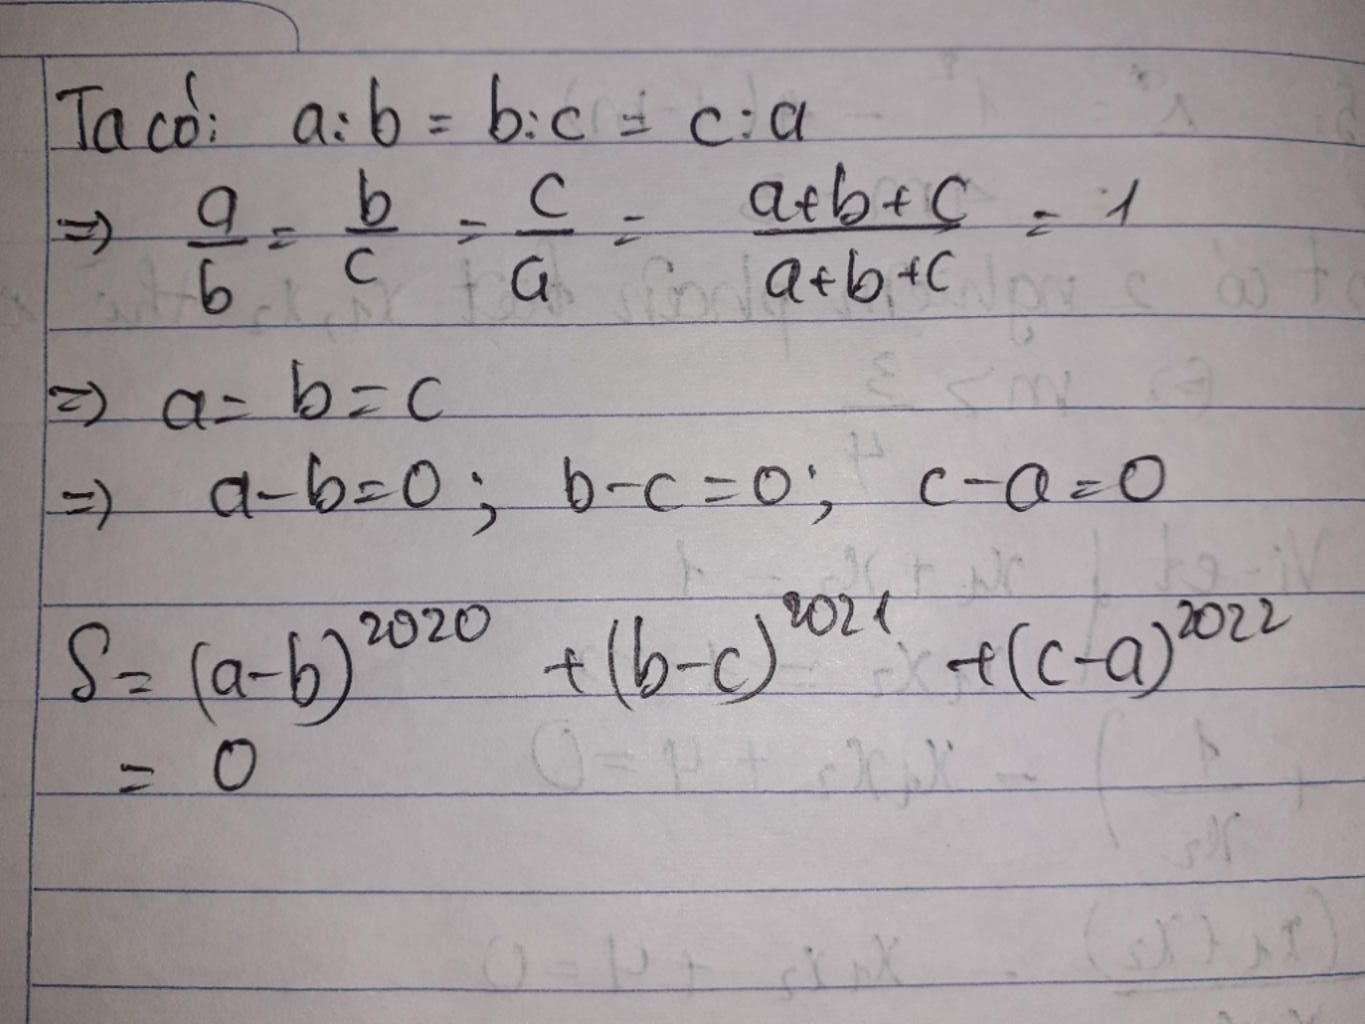 Ta có: a:b = b:c = c:a
=> a/b = b/c = c/a = (a+b+c)/(a+b+c) = 1
=> a = b = c
=> a-b=0; b-c=0; c-a=0
S = (a-b)^2020 + (b-c)^2021 + (c-a)^2022
= 0